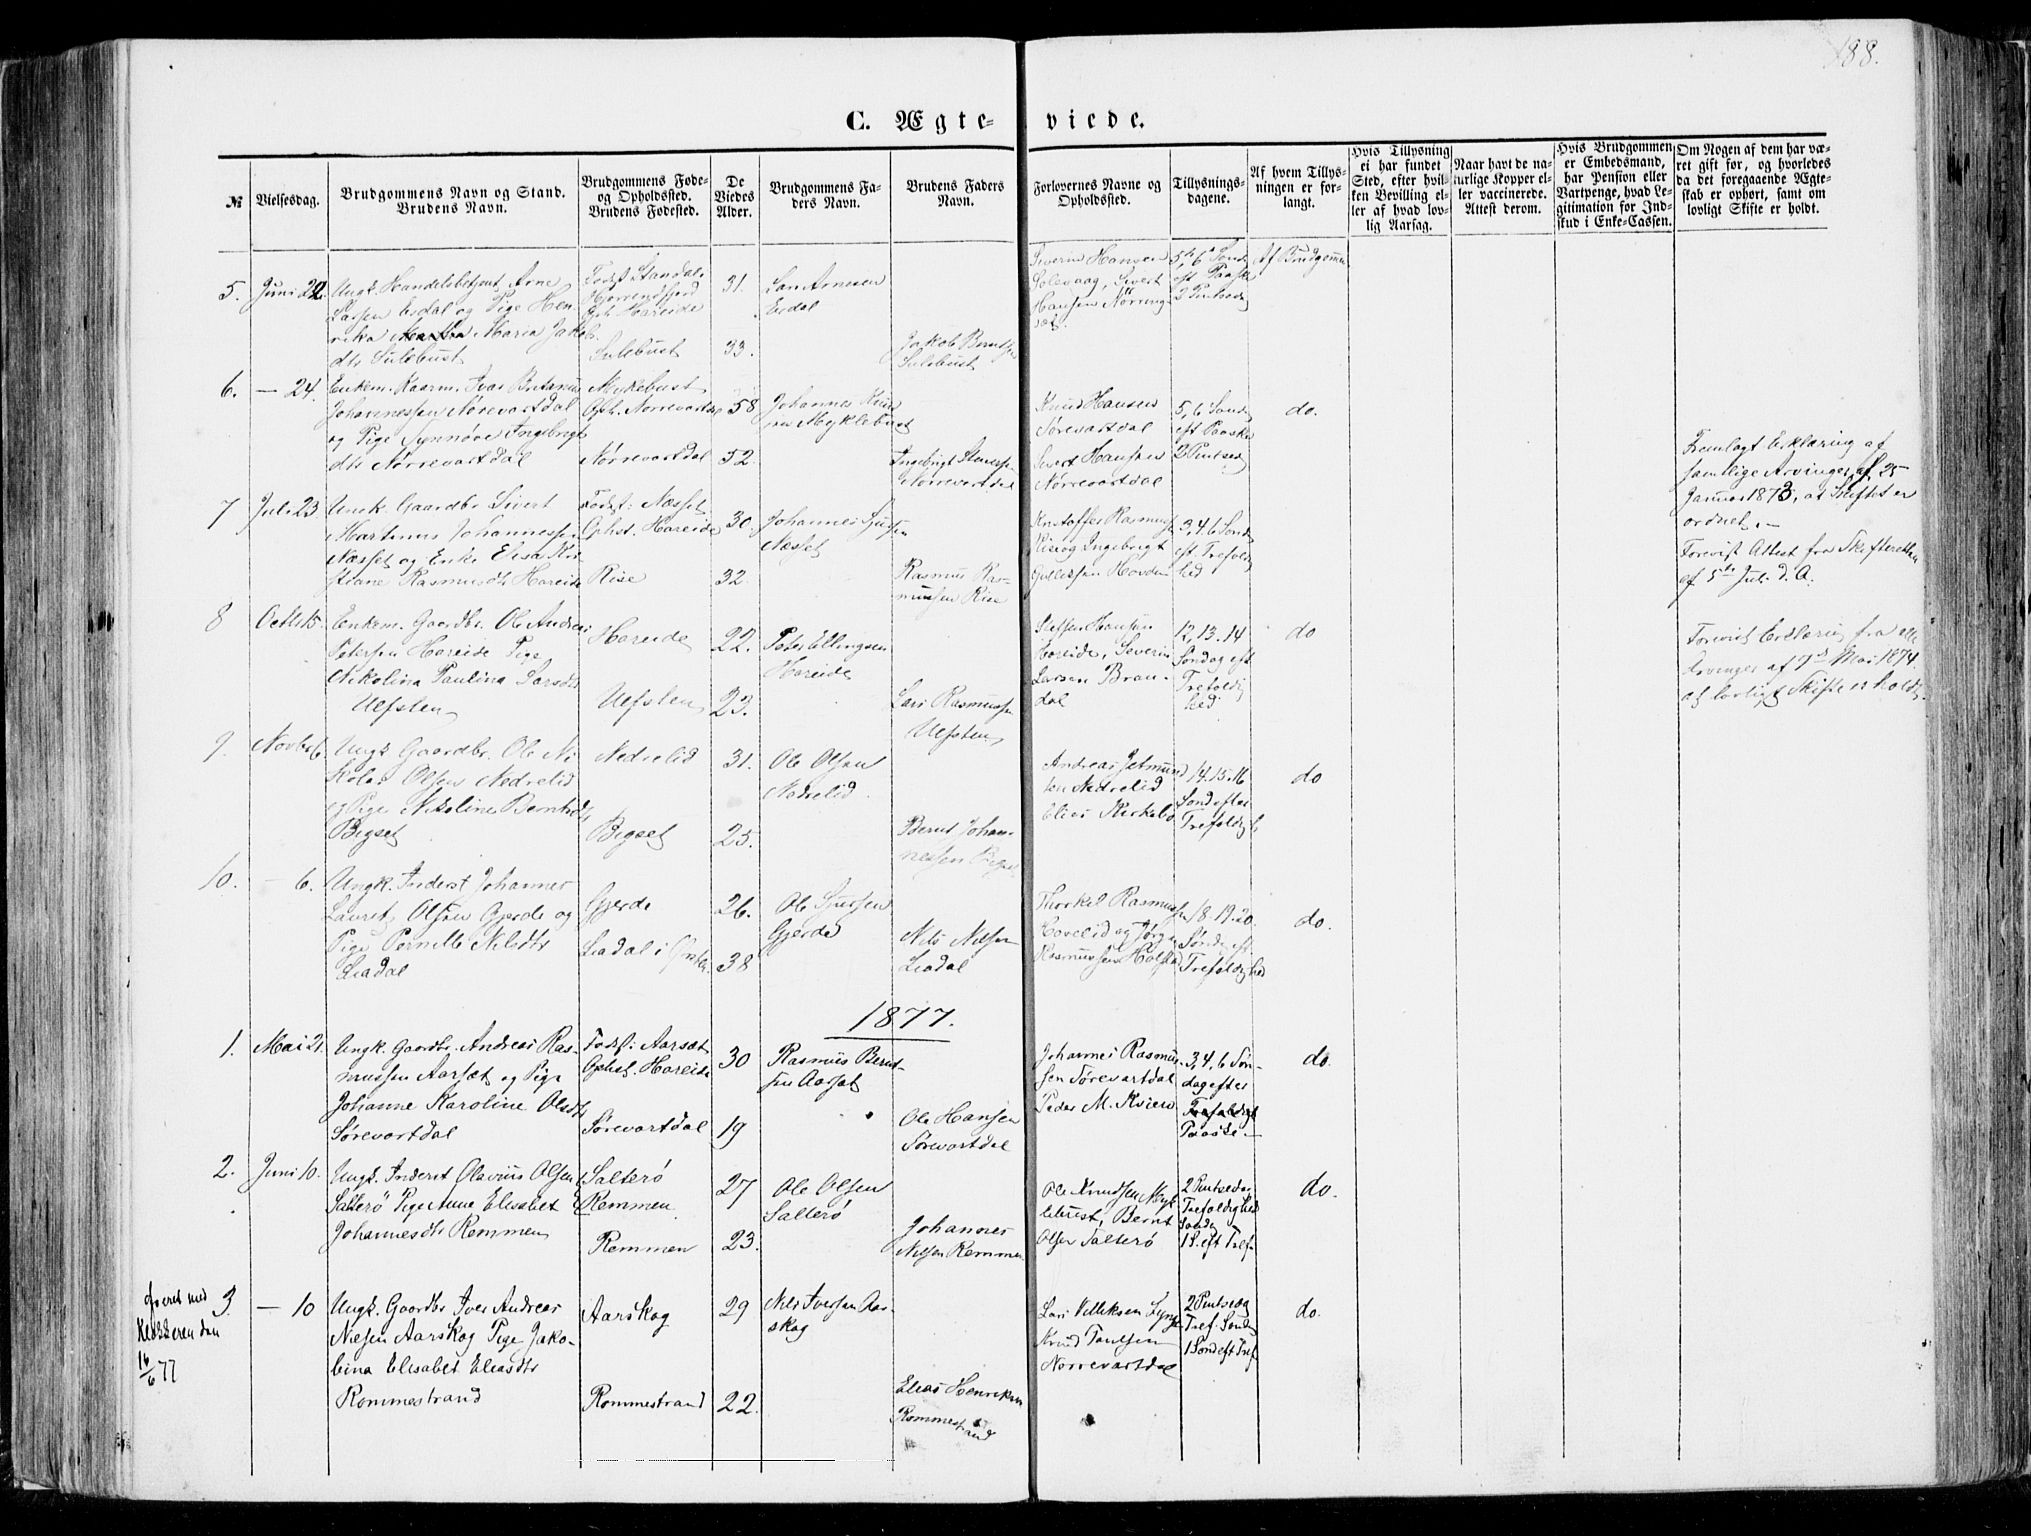 188.
C. Ægte-
viede.
№
Vielsesdag.
Brudgommens Navn og Stand.
Brudens Navn.
Brudgommens Føde-
og Opholdssted.
Brudens Fødested.
De
Viedes
Alder.
Brudgommens Fa-
ders Navn.
Brudens Faders
Navn.
Forlovernes Navne og
Opholdssted.
Tillysnings-
dagene.
Af hvem Tillys-
ningen er for-
langt.
Hvis Tillysning
ei har fundet
Sted, efter hvil-
ken Bevilling el-
ler af hvad lov-
lig Aarsag.
Naar havt de na-
turlige Kopper el-
ler vaccinerede.
Attest derom.
Hvis Brudgommen
er Embedsmand,
har Pension eller
Vartpenge, hvad Le-
gitimation for Ind-
skud i Enke-Cassen.
Om Nogen af dem har væ-
ret gift før, og hvorledes
da det foregaaende Ægte-
skab er ophørt, samt om
lovligt Skifte er holdt.
5.
Juni 22.
Ungk. Handelsbetjent Arne
Larsen Esdal og Pige Hen-
rika Maria Jakob
dtr Sulebust
Fodst Standal
Hjørrendfjord
Oph. Hareide
Sulebust
31.
33.
Lars Arnesen
Esdal
Jakob Berntsen
Sulebust
Severin Hansen
Solevaag, Sivert
Hansen Nørring-
sæt.
5te, 6te Sønd
eft Paaske
2 Pintsedg
Af Brudgommen
6.
— 24.
Enkem. Kaarm. Ivar
Johannessen Nørevartdal
og Pige Synnøve Ingebrigt
dtr Nørrevartdal
Myklebust
Oph. Nørrevartdal
Nørrevartdal
58
52.
Johannes
Myklebust
Ingebrigt
Nørrevartdal
Knud Hansen
Sørevartdal
Sivert Hansen
Nørrevartdal
5, 6 Sønd
eft Paaske
2 Pintsedg
do.
Fremlagt Erklæring af
samtlige Arvinger af 25
Januar 1873, at Skiftet er
ordnet. —
7
Juli 23
Ungk. Gaardbr Sivert
Martinus Johannessen
Næsset og Enke Elisa Kri-
stiane Rasmusdtr Hareide
Fodst: Næsset
Ophst. Hareide
Rise
30.
32.
Johannes Sjursen
Næsset
Rasmus Ras-
mussen Rise
Kristoffer Rasmussen
Rise og Ingebrigt
Gullessen Hovden
3, 4, 6 Sønd
eft. Trefoldig
hed
Forevist Attest fra Skifteretten
af 5te Juli d. A.
8
Octbr 15.
Enkem. Gaardbr. Ole Andreas
Petersen Hareide Pige
Nikolina Paulina Larsdtr
Uefsten
Hareide
Uefsten
22.
23.
Peter Ellingsen
Hareide
Lars Rasmussen
Uefsten
Steffen Hansen
Hareide, Severin
Larsen Bran-
dal
12, 13. 14
Søndag eft
Trefoldig
hed.
do
Forevist Erklæring fra alle
Arvinger af 7de Mai 1874
at lovligt Skifte er holdt.
9.
Novbr 6.
Ungk Gaardbr. Ole Ni-
kolai Olsen Nedrelid
og Pige Nikoline Berntsdtr
Bigset
Nedrelid
Bigset
31.
25.
Ole Olsen
Nedrelid.
Bernt Johan-
nessen Bigset
Andreas Jetmund
sen Nedrelid
Elias Kirkebø
14. 15. 16
Sønd efter
Trefoldigh.
do
10.
— 6.
Ungk. Inderst Johannes
Laurets Olsen Gjerde og
Pige Pernille Nilsdtr
Liadal
Gjerde
Liadal i Ørsten
26.
38
Ole Sjursen
Gjerde
Nils Nilsen
Liadal
Thorkel Rasmussen
Hovelid og Jørgen
Rasmussen Holstad
18. 19. 20.
Søndg eft
Trefoldighed
do.
1877.
1.
Mai 21.
Ungk. Gaardbr. Andreas Ras-
mussen Aarsæt og Pige
Johanne Karoline Olsdtr
Sørevartdal
Fodst: Aarsæt
Ophst. Hareide
Sørevartdal
30
19
Rasmus Bernt-
sen Aarsæt
Ole Hansen
Sørevartdal
Johannes Rasmus-
sen Sørevartdal
Peder M. Kviem
3, 4, 6 Søn-
dag efter
Trefoldigh
Paaske —
do.
2.
Juni 10.
Ungk. Inderst Olavius Olsen
Salterö Pige Anne Elisabet
Johannesdtr Remmen
Salterö
Remmen
Remmen
27
23.
Ole Olsen
Salterö
Johannes
Nilsen Remmen
Ole Knudsen Myk
lebust, Bernt
Olsen Salterö
2 Pintsedag
Trefoldighed
Sønda
1 S. eft Tref.
do.
ført med
Klokkeren den
16/6 77
3.
— 10
Ungk. Gaardbr Iver Andreas
Nilsen Aarskog Pige Jako-
bina Elisabet Eliasdtr
Rommestrand
Aarskog
Rommestrand
29
22.
Nils Iversen Aar-
skog
Elias Henriksen
Rommestrand
Lars Villiksen
Knud Paulsen
Nørrevartdal
2 Pintsedg
Tref. Sønd
1 Sønd eft Tref
do.